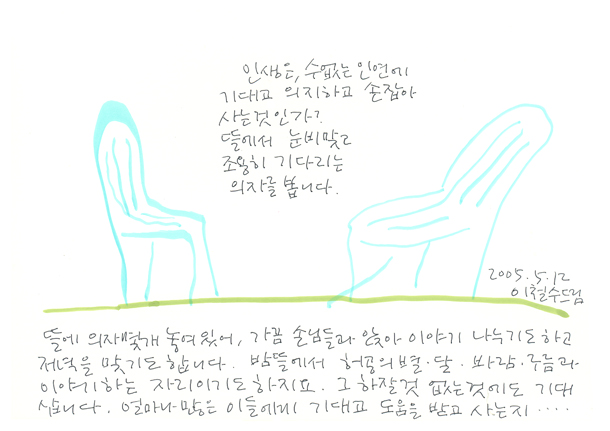 인생은, 수없는 인연에
기대고 의지하고 손잡아
사는것인가?
뜰에서 눈비맞고
조용히 기다리는
의자를 봅니다.
2005.5.12
이철수드림
뜰에 의자몇개 놓여있어, 가끔 손님들과 앉아 이야기 나누기도하고
저녁을 맞기도합니다. 밤뜰에서 허공의별·달·바람·구름과
이야기하는 자리이기도하지요. 그 하잘것 없는것에도 기대
삽니다. 얼마나 많은 이들에게 기대고 도움을 받고 사는지····